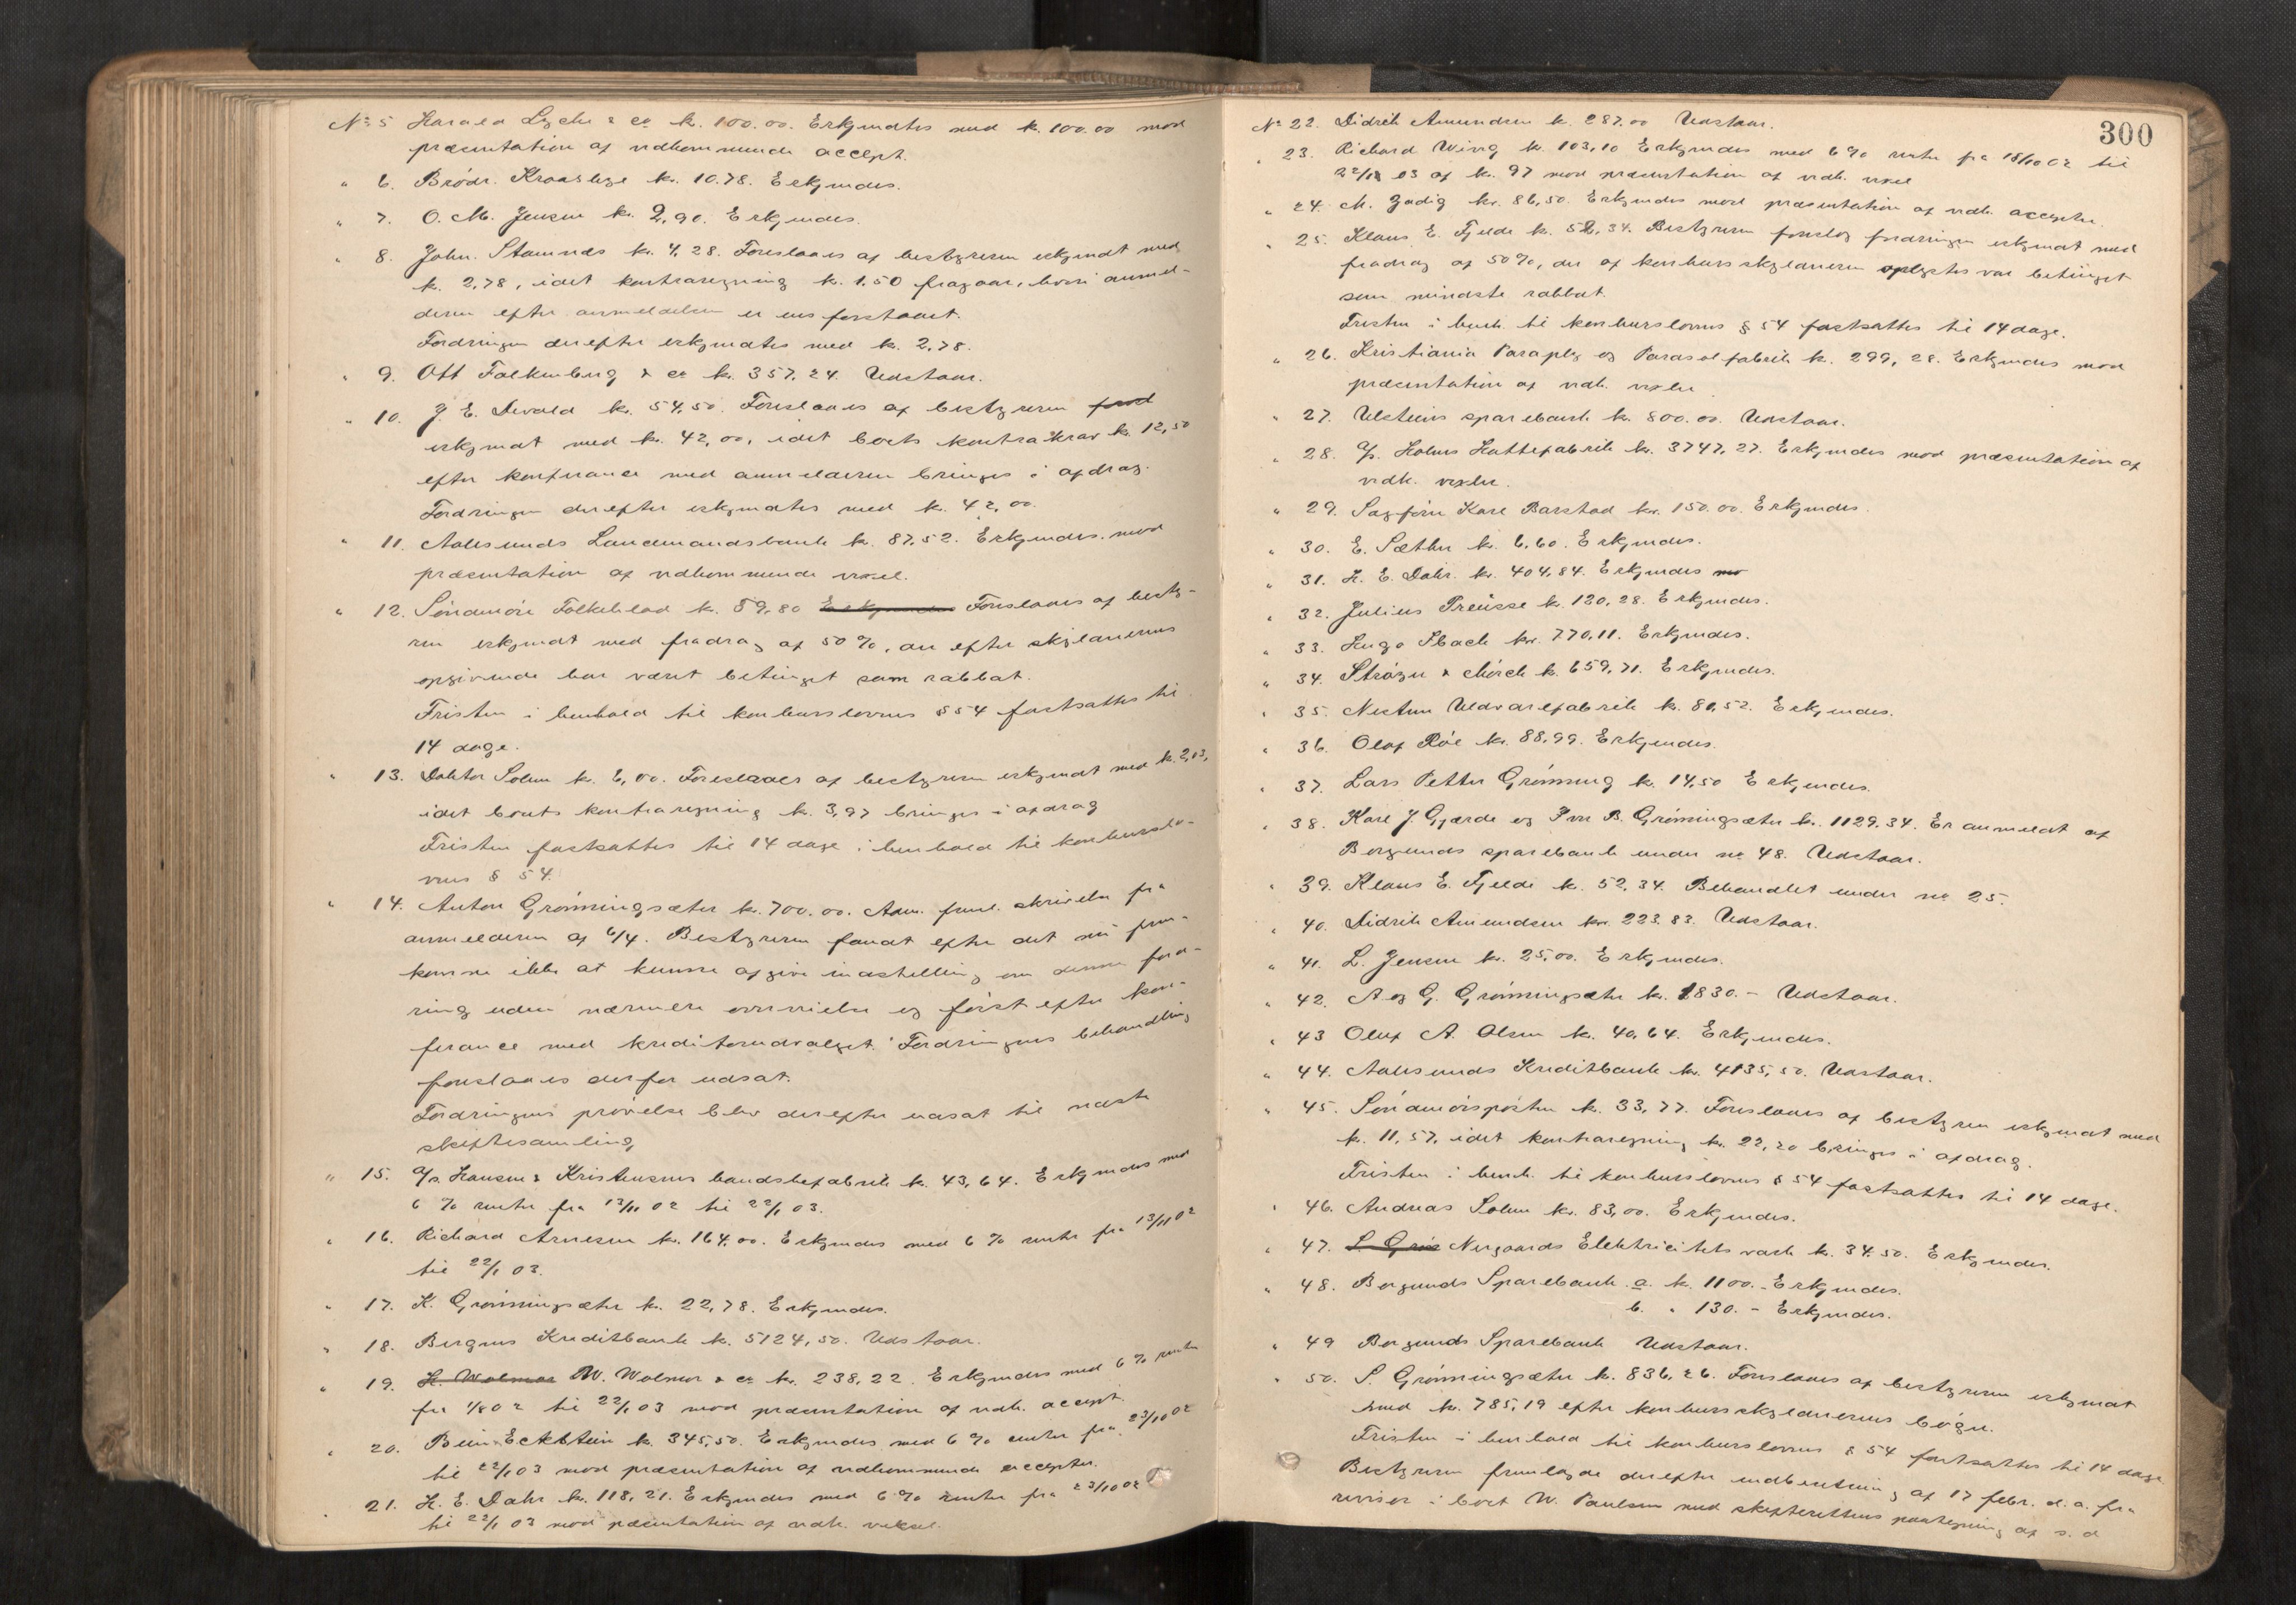 No 5 Harald Lyche & co k. 100.00. Erkjendtes med k. 100.00 mod
præsentation af vedkommende accept.
" 6. Brödr. Kraaslye k. 10.78. Erkjendes.
" 7. O. M. Jensen kr. 2,90. Erkjendes.
" 8. John. Stamnes kr. 4,28. Foreslaaes af bestyreren erkjendt med
k. 2,78, idet kontraregning k. 1.50 fragaar, hvori anmel-
deren efter anmeldelsen er enig forstaaet.
Fordringen derefter erkjendtes med k. 2,78.
" 9. Ott Falkenberg & co k. 357,24. Udstaar.
" 10. J. E. Devold k. 54,50. Foreslaaes af bestyreren
erkjendt med kr. 42,00, idet boets kontrakrav k. 12,50
efter konferance med anmelderen bringes i afdrag.
Fordringen derefter erkjendtes med k. 42,00.
" 11. Aalesunds Landmandsbank k. 87.52. Erkjendes mod
præsentation af vedkommende vexel.
" 12. Söndmöre Folkeblad k. 59,80 Erkjendes Foreslaaes af besty-
ren erkjendt med fradrag af 50%, der efter skyldnerens
opgivende har været betinget som rabbat.
Fristen i henhold til konkurslovens § 54 fastsattes til
14 dage.
" 13. Doktor Solem k. 6,00. Foreslaaes af bestyreren erkjendt med k. 2,03,
idet boets kontraregning k. 3,97 bringes i afdrag
Fristen fastsattes til 14 dage i henhold til konkurslo-
vens § 54.
" 14. Anton Grönningsæter kr. 700.00. Adv. freml. skrivelse fra
anmelderen af 6/4. Bestyreren fandt efter det nu frem-
komne ikke at kunne afgive indstilling om denne ford-
ring uden nærmere overveielse og först efter kon-
ferance med kreditorudvalget. Fordringens behandling
foreslaaes derfor udsat.
Fordringens prövelse blev derefter udsat til næste
skiftesamling
" 15. A/s Hansen & Kristensens handskefabrik k. 43,64. Erkjendes med
6 % renter fra 13/11 02 til 22/1 03.
" 16. Richard Arnesen kr. 164.00. Erkjendes med 6 % renter fra 13/11 02
til 22/1 03.
" 17. K. Grönningsæter kr. 22,78. Erkjendes.
" 18. Bergens Kreditbank k. 5124,50. Udstaar.
" 19. H. Wolmer W. Wolmer & co kr. 238,22. Erkjendes med 6 % renter
fra 1/8 02 til 22/1 03 mod præsentation af vedk. accept.
" 20. Eckstein k. 345,50. Erkjendes med 6 % renter fra 23/10 02
til 22/1 03 mod præsentation af vedkommende accepter.
" 21. H. E. Dahr k. 118,21. Erkjendes med 6 % renter fra 23/10 02
til 22/1 03 mod præsentation af vedk. veksel.
300
No 22. Didrik Amundsen k. 287.00 Udstaar.
" 23. Richard Wing k. 103,10 Erkjendes med 6 % renter fra 15/10 02 til
22/1 03 af k. 97 mod præsentation af vedk. vexel
" 24. M. Zadig kr. 86,50. Erkjendes mod præsentation af vedk. accepter.
" 25. Klaus E. Fjelde k. 52,34. Bestyreren foreslog fordringen erkjendt med
fradrag af 50 %, der af konkursskyldneren oplystes var betinget
som mindste rabbat.
Fristen i henh. til konkurslovens § 54 fastsattes til 14 dage.
" 26. Kristiania Paraply og Parasolfabrik k. 299,28. Erkjendes mod
præsentation af vedk. vexler
" 27. Ulsteins sparebank k. 800.00. Udstaar.
" 28. A/s. Holms Hattefabrik kr. 3747,27. Erkjendes mod præsentation af
vedk. vexler.
" 29. Sagförer Kare Barstad kr. 150.00. Erkjendes.
" 30. E. Sæther k. 6,60. Erkjendes.
" 31. H. E. Dahr. kr. 404,84. Erkjendes mo
" 32. Julius Preüsse k. 120,28. Erkjendes.
" 33. Hugo Ibach kr. 770,11. Erkjendes.
" 34. Ströyer & Mörch k. 659,71. Erkjendes.
" 35. Nestun Uldvarefabrik k. 80,52. Erkjendes.
" 36. Olaf Röe kr. 88,99. Erkjendes.
" 37. Lars Petter Grönning k. 14,50 Erkjendes.
" 38. Karl J. Gjærde og Iver B. Grönningsæter k. 1129,34. Er anmeldt af
Borgunds sparebank under no 48. Udstaar.
" 39. Klaus E. Fjelde k. 52,34. Behandlet under no 25.
" 40. Didrik Amundsen kr. 223.83. Udstaar.
" 41. L. Jensen kr. 25,00. Erkjendes.
" 42. A og G. Grönningsæter k. 1830.- Udstaar.
" 43 Oluf A. Olsen k. 40,64. Erkjendes.
" 44. Aalesunds Kreditbank kr. 4135,50. Udstaar.
" 45. Söndmörsposten k. 33,77. Foreslaaes af bestyreren erkjendt med
k. 11,57, idet kontraregning kr. 22,20 bringes i afdrag.
Fristen i henh. til konkurslovens § 54 fastsattes til 14 dage.
" 46. Andreas Solem kr. 83,00. Erkjendes.
" 47. Nergaards Elektricitetsverk k. 34.50. Erkjendes.
" 48. Borgunds Sparebank a. k. 1100.- Erkjendes.
b. " 130.- Erkjendes.
" 49 Borgunds Sparebank Udstaar.
" 50. S. Grönningsæter k. 836,26. Foreslaaes af bestyreren erkjendt
med k. 785,19 efter konkursskyldnerens böger.
Fristen i henhold til konkurslovens § 54 fastsattes til 14 dage
Bestyreren fremlagde derefter indberetning af 17 febr. d. a. fra
revisor i boet W. Paulsen med skifterettens paategning af s. d